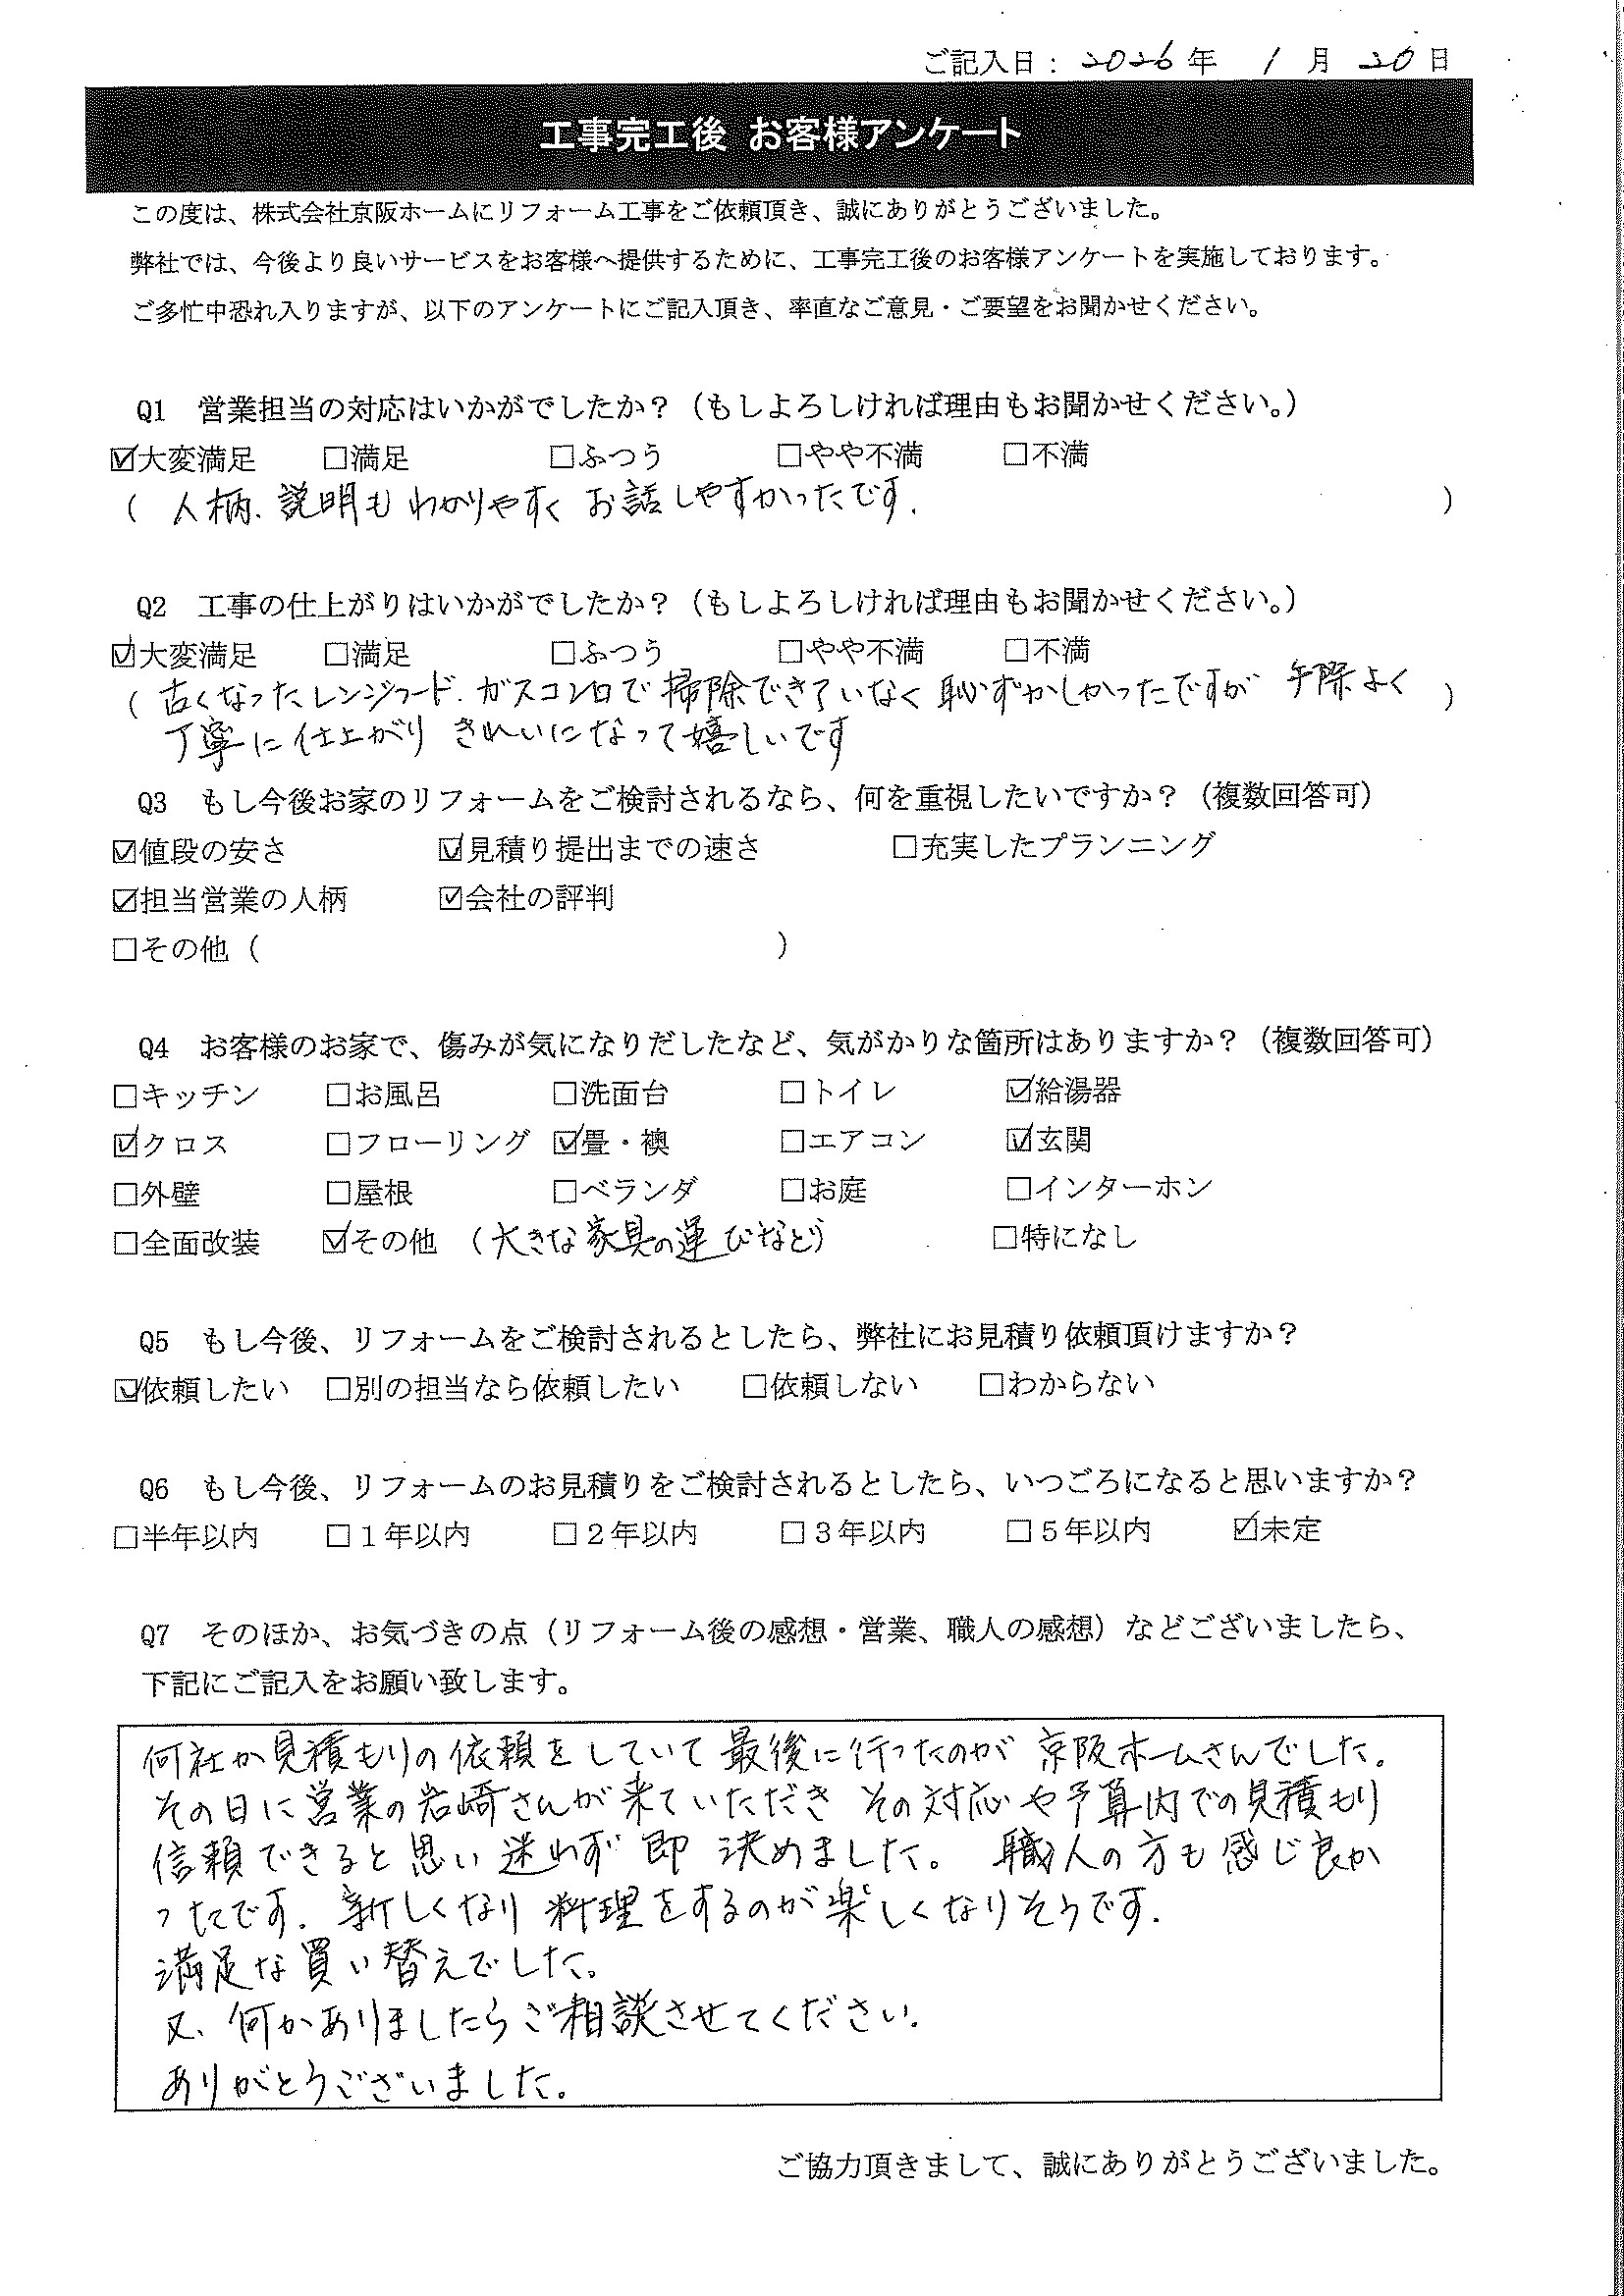 ご記入日：2026年 1月 20日
工事完工後 お客様アンケート
この度は、株式会社京阪ホームにリフォーム工事をご依頼頂き、誠にありがとうございました。
弊社では、今後より良いサービスをお客様へ提供するために、工事完工後のお客様アンケートを実施しております。
ご多忙中恐れ入りますが、以下のアンケートにご記入頂き、率直なご意見・ご要望をお聞かせください。
Q1 営業担当の対応はいかがでしたか？（もしよろしければ理由もお聞かせください。）
☑大変満足 □満足 □ふつう □やや不満 □不満
（ 人柄、説明もわかりやすく お話しやすかったです. ）
Q2 工事の仕上がりはいかがでしたか？（もしよろしければ理由もお聞かせください。）
☑大変満足 □満足 □ふつう □やや不満 □不満
（ 古くなったレンジフード、ガスコンロで掃除できていなく恥ずかしかったですが 手際よく ）
丁寧に仕上がり きれいになって嬉しいです
Q3 もし今後お家のリフォームをご検討されるなら、何を重視したいですか？（複数回答可）
☑値段の安さ ☑見積り提出までの速さ □充実したプランニング
☑担当営業の人柄 ☑会社の評判
□その他（ ）
Q4 お客様のお家で、傷みが気になりだしたなど、気がかりな箇所はありますか？（複数回答可）
□キッチン □お風呂 □洗面台 □トイレ ☑給湯器
☑クロス □フローリング ☑畳・襖 □エアコン ☑玄関
□外壁 □屋根 □ベランダ □お庭 □インターホン
□全面改装 ☑その他（大きな家具の運びなど） □特になし
Q5 もし今後、リフォームをご検討されるとしたら、弊社にお見積り依頼頂けますか？
☑依頼したい □別の担当なら依頼したい □依頼しない □わからない
Q6 もし今後、リフォームのお見積りをご検討されるとしたら、いつごろになると思いますか？
□半年以内 □１年以内 □２年以内 □３年以内 □５年以内 ☑未定
Q7 そのほか、お気づきの点（リフォーム後の感想・営業、職人の感想）などございましたら、
下記にご記入をお願い致します。
何社か見積もりの依頼をしていて最後に行ったのが 京阪ホームさんでした。
その日に営業の岩崎さんが来ていただき その対応や予算内での見積もり
信頼できると思い迷わず即 決めました。 職人の方も感じ良か
ったです. 新しくなり 料理をするのが楽しくなりそうです.
満足な買い替えでした。
又、何かありましたらご相談させてください.
ありがとうございました。
ご協力頂きまして、誠にありがとうございました。